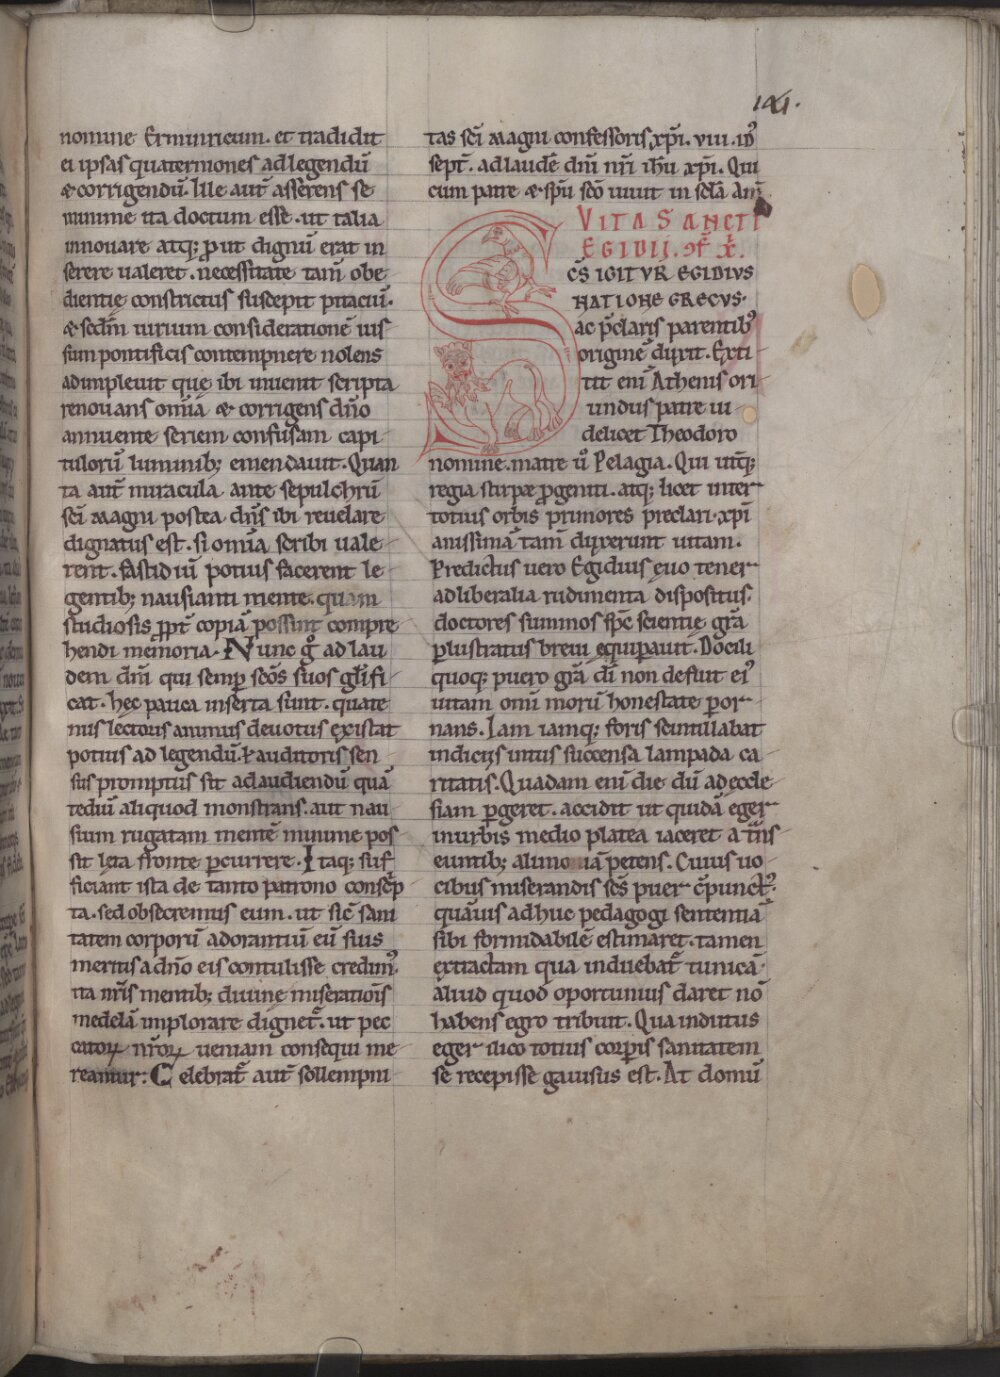 141.
nomine Erminricum. et tradidit
ei ipsas quaterniones ad legendū
& corrigendū. Ille aut̄ asserens se
minime ita doctum esse. ut talia
innouare atq; ꝓut dignū erat in
serere ualeret. necessitate tam̄ obe
dientię constrictus suscepit pitaciū.
& sedm̄ uirium consideratione ius
sum pontificis contempnere nolens
adimpleuit que ibi inuenit scripta
renouans om̄ia & corrigens dn̄o
annuente seriem confusam capi
tulorū luminib; emendauit. Quan
ta aut̄ miracula ante sepulchrū
sc̄i Magni postea dn̄s ibi reuelare
dignatus est. si om̄ia scribi uale
rent. fastidiū potius facerent le
gentib; nausianti mente. quam
studiosis ꝓpt̄ copiā possint compre
hendi memoria. Nunc gͦ ad lau
dem dn̄i qui semꝑ sc̄os suos glīfi
cat. hęc pauca inserta sunt. quate
nus lectoris animus deuotus existat
potius ad legendū. ł auditoris sen
sus promptus sit ad audiendū quā
tediū aliquod monstrans. aut nau
sium rugatam mentē minime pos
sit lęta fronte ꝑcurrere. Itaq; suf
ficiant ista de tanto patrono conscͥp
ta. sed obsecremus eum. ut sic̄ sani
tatem corporū adorantiū eū suis
meritis a dn̄o eis contulisse credimꝰ.
ita nr̄is mentib; diuine miserationis
medelā implorare dignet̄. ut pec
catoꝝ nr̄oꝝ ueniam consequi me
reamur: Celebrat̄ aut̄ sollempni
tas sc̄i Magni confessoris xp̄i. VIII. idꝰ
sept̄. ad laudē dn̄i nr̄i ih̄u xp̄i. Qui
cum patre & sp̄u sc̄o uiuit in sc̄la. Am̄
VITA SANCTI
EGIDIJ. ꝯf̄ x̄.
SCS IGITVR EGIDIVS
NATIONE GRECVS.
ac p̄claris parentibꝰ
origine duxit. Exti
tit eni Athenis ori
undus patre ui
delicet Theodoro
nomine. matre ū Pelagia. Qui utiq;
regia stirpe ꝓgeniti. atq; licet inter
totius orbis primores preclari. xp̄i
anissimā tam̄ duxerunt uitam.
Predictus uero Egidius ęuo tener
ad liberalia rudimenta dispositus.
doctores summos sp̄c scientie gr̄a
ꝑlustratus breui ęquiperauit. Docili
quoq; puero gr̄a dī non defuit eiꝰ
uitam om̄i morū honestate por
nans. Iam iamq; foris scintillabat
indicijs intus succensa lampada ca
ritatis. Quadam eni die dū ad eccle
siam ꝑgeret. accidit ut quidā eger
in urbis medio platea iaceret a trn̄s
euntib; alimoniā petens. Cuius uo
cibus miserandis sc̄s puer c̄punctꝰ.
quāuis adhuc pedagogi sententiā
sibi formidabilē estimaret. tamen
extractam qua induebat̄ tunicā.
aliud quod oportunius daret nō
habens egro tribuit. Qua indutus
eger ilico totius corꝑis sanitatem
se recepisse gauisus est. At domū